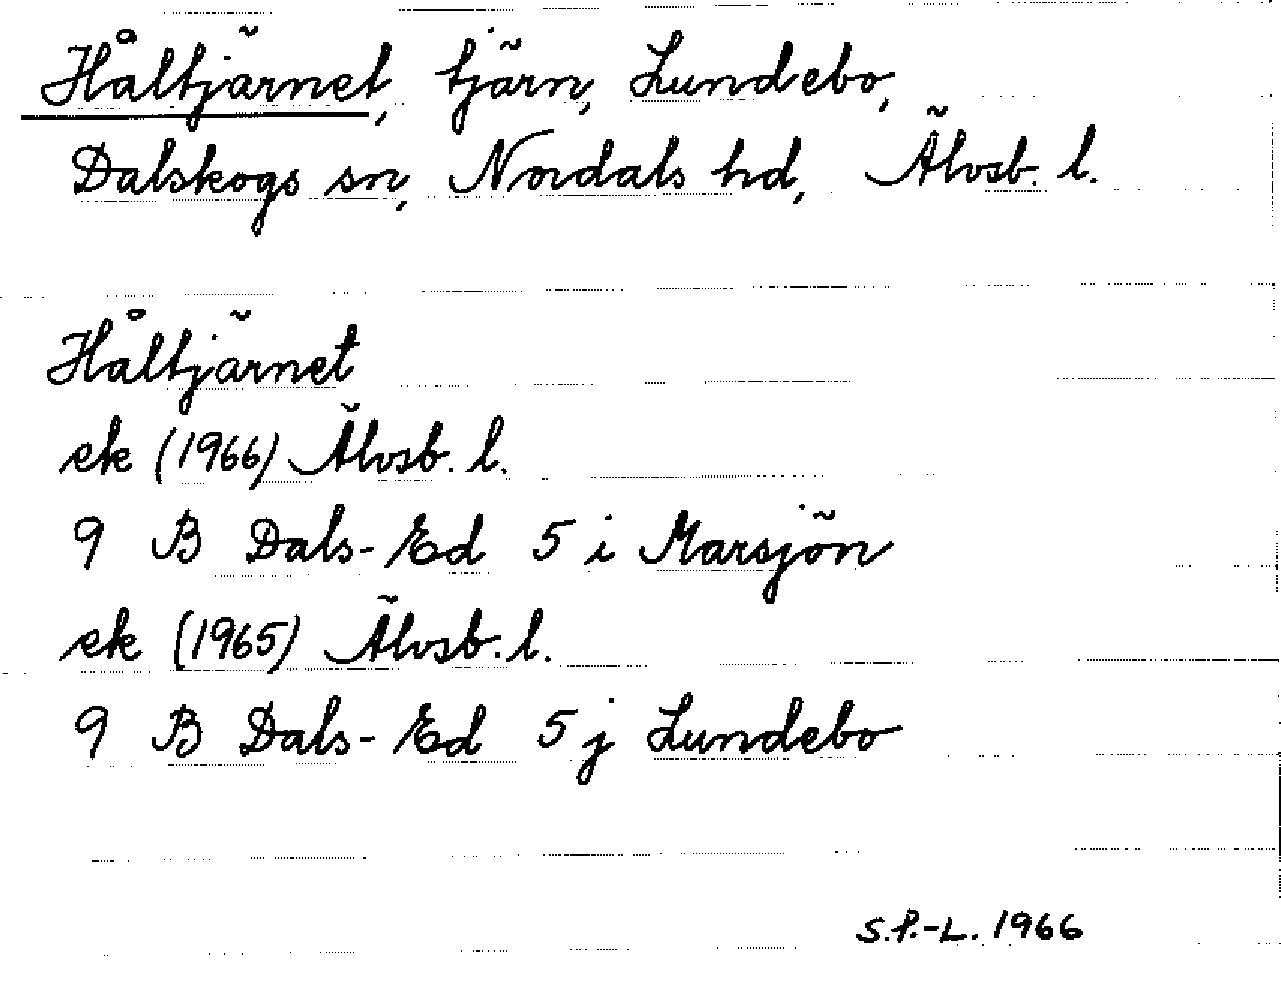 Håltjärnet, tjärn, Lundebo,
Dalskogs sn, Nordals hd, Älvsb. l.
Håltjärnet
ek (1966) Älvsb. l.
9 B Dals-Ed 5 i Marsjön
ek (1965) Älvsb. l.
9 B Dals-Ed 5 j Lundebo
S.P.-L. 1966